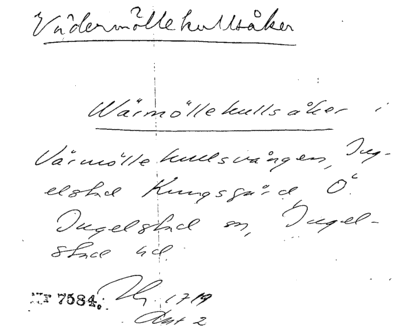 Vädermöllekullsåker
Wärmöllekullsåker i
Värmöllekullsvången, Ing-
elstad Kungsgård, Ö.
Ingelstad sn, Ingel-
stad hd
Nr 7584. 1719
Akt 2